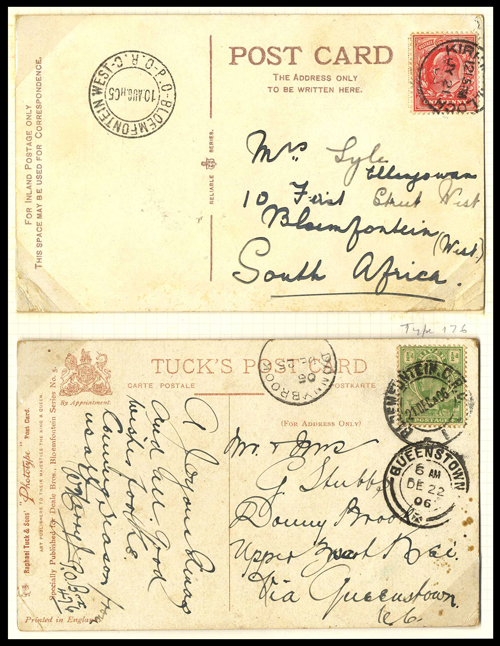 FOR INLAND POSTAGE ONLY
THIS SPACE MAY BE USED FOR CORRESPONDENCE.
BLOEMFONTEIN WEST-O.R.C.
10 AUG
POST CARD
THE ADDRESS ONLY
TO BE WRITTEN HERE.
RELIABLE SERIES.
Mrs Lyle
Ellengowan
10 First Street West
Bloemfontein
(West)
South Africa.
Type 176
By Appointment.
TUCK'S POST CARD
CARTE POSTALE
POSTKARTE
(FOR ADDRESS ONLY)
DONNYBROOK
BLOEMFONTEIN
21 DEC 06
QUEENSTOWN
6 AM
DE 22
06
Raphael Tuck & Sons' "Phototype" Post Card.
ART PUBLISHERS TO THEIR MAJESTIES THE KING & QUEEN.
Specially Published for Deale Bros., Bloemfontein Series No. 5.
Printed in England
A Joyous Xmas
And all Good
wishes for the
Coming Season
Mr. & Mrs
G Stubbs
Donny Brook
Upper
Via Queenstown
C.C.